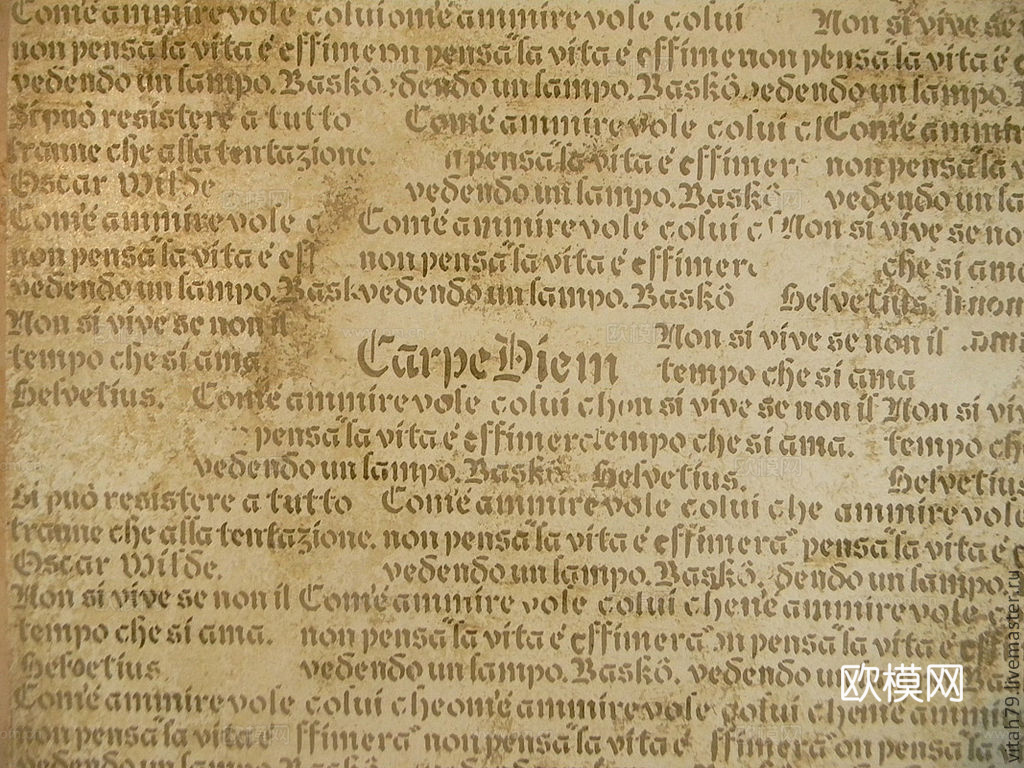 Com'è ammirevole colui om'è ammirevole colui Non si vive se
non pensa "la vita è effime on pensa "la vita è effime non pensa "la vita è e
vedendo un lampo. Baskō dendo un lampo. Baskō. vedendo un lampo.
Si può resistere a tutto Com'è ammirevole colui c Com'è ammir
tranne che alla tentazione. n pensa "la vita è effimer non pensa "la v
Oscar Wilde vedendo un lampo. Baskō vedendo un la
Com'è ammirevole c Com'è ammirevole colui c Non si vive se no
non pensa "la vita è eff non pensa "la vita è effimer che si ama
vedendo un lampo. Bask vedendo un lampo. Baskō Helvetius.
Non si vive se non il Non si vive se non il
tempo che si ama Carpe Diem tempo che si ama
Helvetius. Com'è ammirevole colui ch on si vive se non il Non si viv
pensa "la vita è effimera tempo che si ama. tempo ch
vedendo un lampo. Baskō Helvetius. Helvetius
Si può resistere a tutto Com'è ammirevole colui che ammirevole
tranne che alla tentazione. non pensa "la vita è effimera" pensa "la vita è e
Oscar Wilde. vedendo un lampo. Baskō. dendo un lampo.
Non si vive se non il Com'è ammirevole colui che n'è ammirevole c
tempo che si ama. non pensa "la vita è effimera" on pensa "la vita è eff
Helvetius vedendo un lampo. Baskō. vedendo un Ba
欧模网
Com'è ammirevole colui che om'è ammirevole colui che m'è ammi
non pensa "la vita è ffimera" non pensa "la vita è ffimera" on pensa "la v
vitah79.livemaster.ru